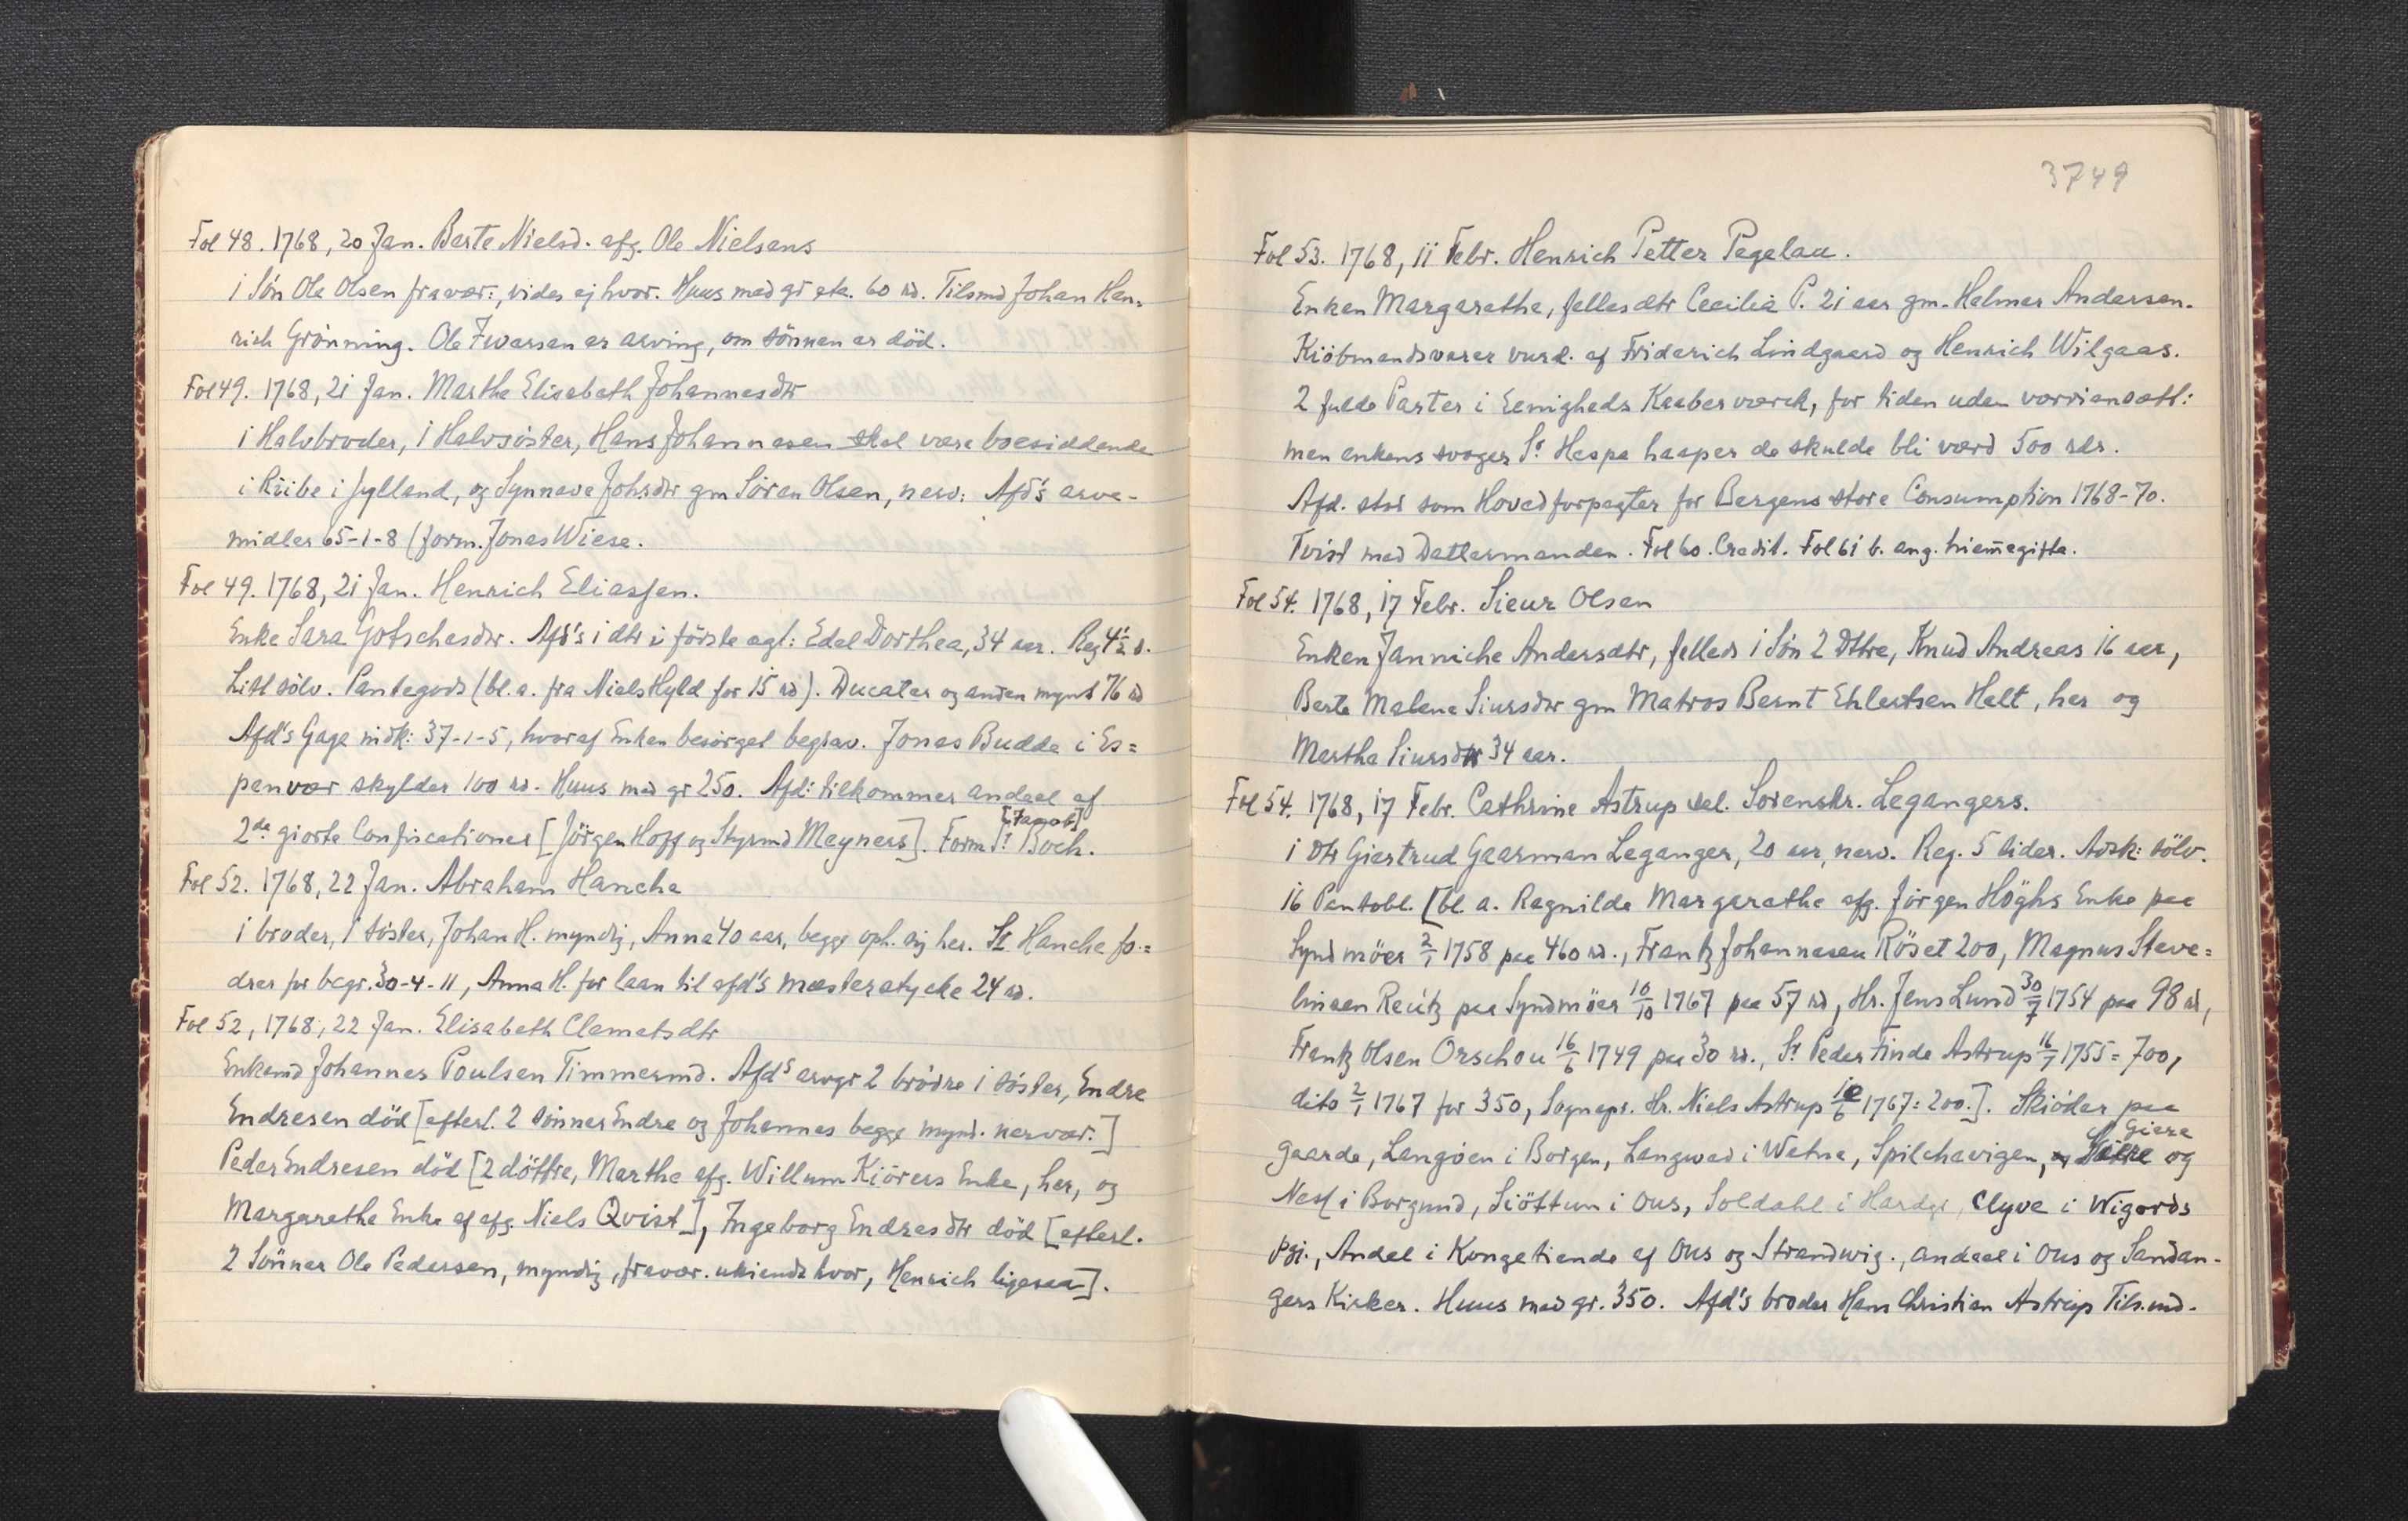 Fol 48. 1768, 20 Jan. Berte Nielsd. afg. Ole Nielsens
1 Sön Ole Olsen fravær:, vides ej hvor. Huus med gr etc. 60 rd. Tilsmd Johan Hen=
rich Grönning. Ole Iwersen er arving, om sönnen er död.
Fol 49. 1768, 21 Jan. Marthe Elisabeth Johannesdtr
1 Halvbroder, 1 Halvsöster, Hans Johannesen skal være boesiddende
i Riibe i Jylland, og Synneve Johsdtr gm Sören Olsen, nerv: Afd's arve-
midler 65-1-8 (form. Jonas Wiese.
Fol 49. 1768, 21 Jan. Henrich Eliassen.
Enke Sara Gotschesdtr. Afd's 1 dtr i förste egt: Edel Dorthea, 34 aar. Reg 4½ s.
Litt sölv. Pantegods (bl.a. fra Niels Hyld for 15 rd). Ducater og anden mynt 76 rd
Afd's Gage indk: 37-1-5, hvoraf Enken besörget begrav. Jonas Budde i Es=
penvær skylder 100 rd. Huus med gr 250. Afd: tilkommer andeel af
2de giorte Confiscationer [Jörgen Hoff og Styrmd Meyners]. Form Sr [Jacob] Boch.
Fol 52. 1768, 22 Jan. Abraham Hancke
1 broder, 1 söster, Johan H. myndig, Anna 40 aar, begge oph. sig her. Sr Hancke fo=
drer for begr. 30-4-11, Anna H. for laan til afd's mesterstycke 24 rd.
Fol 52, 1768, 22 Jan. Elisabeth Clemetsdtr
Enkemd Johannes Poulsen Timmermd. Afds arvgr 2 brödre 1 söster, Endre
Endresen död [efterl. 2 sönner Endre og Johannes begge mynd. nervær.]
Peder Endresen död [2 döttre, Marthe afg. Willum Kiörers Enke, her, og
Margarethe Enke ef afg. Niels Qvist], Ingeborg Endresdtr död [efterl.
2 Sönner Ole Pedersen, myndig, fravær. ukiendt hvor, Henrich ligesaa].
3749
Fol 53. 1768, 11 Febr. Henrich Petter Pegelau.
Enken Margarethe, felles dtr Cecilia P. 21 aar gm. Helmer Andersen.
Kiöbmandsvarer vurd. af Friderich Lindgaard og Henrich Wilgaas.
2 fulde Parter i Eenigheds Kaaberværck, for tiden uden værdiansett:
men enkens svoger Sr Hespe haaper de skulde bli værd 500 rdr.
Afd. stod som Hovedforpagter for Bergens store Consumption 1768-70.
Tvist med Datlermanden. Fol 60. Credit. Fol 61 b. ang. hiem̄egifte.
Fol 54. 1768, 17 Febr. Sieur Olsen
Enken Janniche Andersdtr, felleds 1 Sön 2 Dttre, Knud Andreas 16 aar,
Berte Malene Siursdtr gm Matros Bernt Ehlertsen Helt, her og
Marthe Siursdtr 34 aar.
Fol 54. 1768, 17 Febr. Cathrine Astrup sel. Sorenskr. Legangers.
1 Dtr Giertrud Gaarman Leganger, 20 aar, nerv. Reg. 5 sider. Adsk: sölv.
16 Pantobl. [bl. a. Ragnilde Margarethe afg. Jörgen Höghs Enke paa
Syndmöer 2/1 1758 paa 460 rd., Frantz Johannesen Röset 200, Magnus Steve=
linsen Reütz paa Syndmöer 10/10 1767 paa 57 rd, Hr. Jens Lund 30/7 1754 paa 98 rd,
Frantz Olsen Orschou 16/6 1749 paa 30 rd., Sr Peder Finde Astrup 16/7 1755 = 700,
dito 2/1 1767 for 350, Sognepr. Hr. Niels Astrup 10/6 1767: 200.]. Skiöder paa
Gaarde, Langöen i Borgen, Langwad i Watne, Spilchevigen, Giere og
Nesf i Borgund, Siöttun i Ous, Soldahl i Hardgr, Clyve i Wigørds
pgi., Andel i Kongetiende af Ous og Strandwig., andeel i Ous og Sandan-
gers Kirker. Huus med gr. 350. Afd's broder Hans Christian Astrup Tils.md.